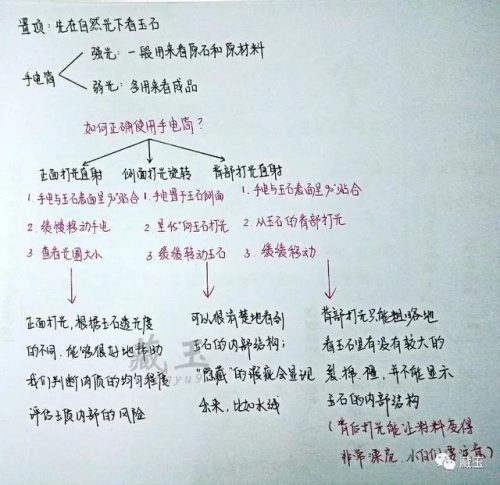 置顶：先在自然光下看玉石
手电筒
强光：一般用来看原石和原材料
弱光：多用来看成品
如何正确使用手电筒？
正面打光直射
侧面打光旋转
背部打光直射
1 手电与玉石表面呈90°贴合
2. 缓慢移动手电
3 查看光圈大小
1. 手电置于玉石侧面
2. 呈45°向玉石打光
3. 缓缓转动玉石
1. 手电与玉石表面呈90°贴合
2. 从玉石的背部打光
3. 缓缓移动
正面打光，根据玉石透光度
的不同，能够很好地帮助
我们判断内质的均匀程度
评估玉质内部的风险
可以很清楚地看到
玉石的内部结构；
"隐藏"的瑕疵会显现
出来，比如水线
背部打光只能粗略地
看玉石里有没有较大的
裂、棉、僵，并不能显示
玉石的内部结构
（背后打光能让料变得
非常漂亮，小白们要注意）
藏玉
藏玉